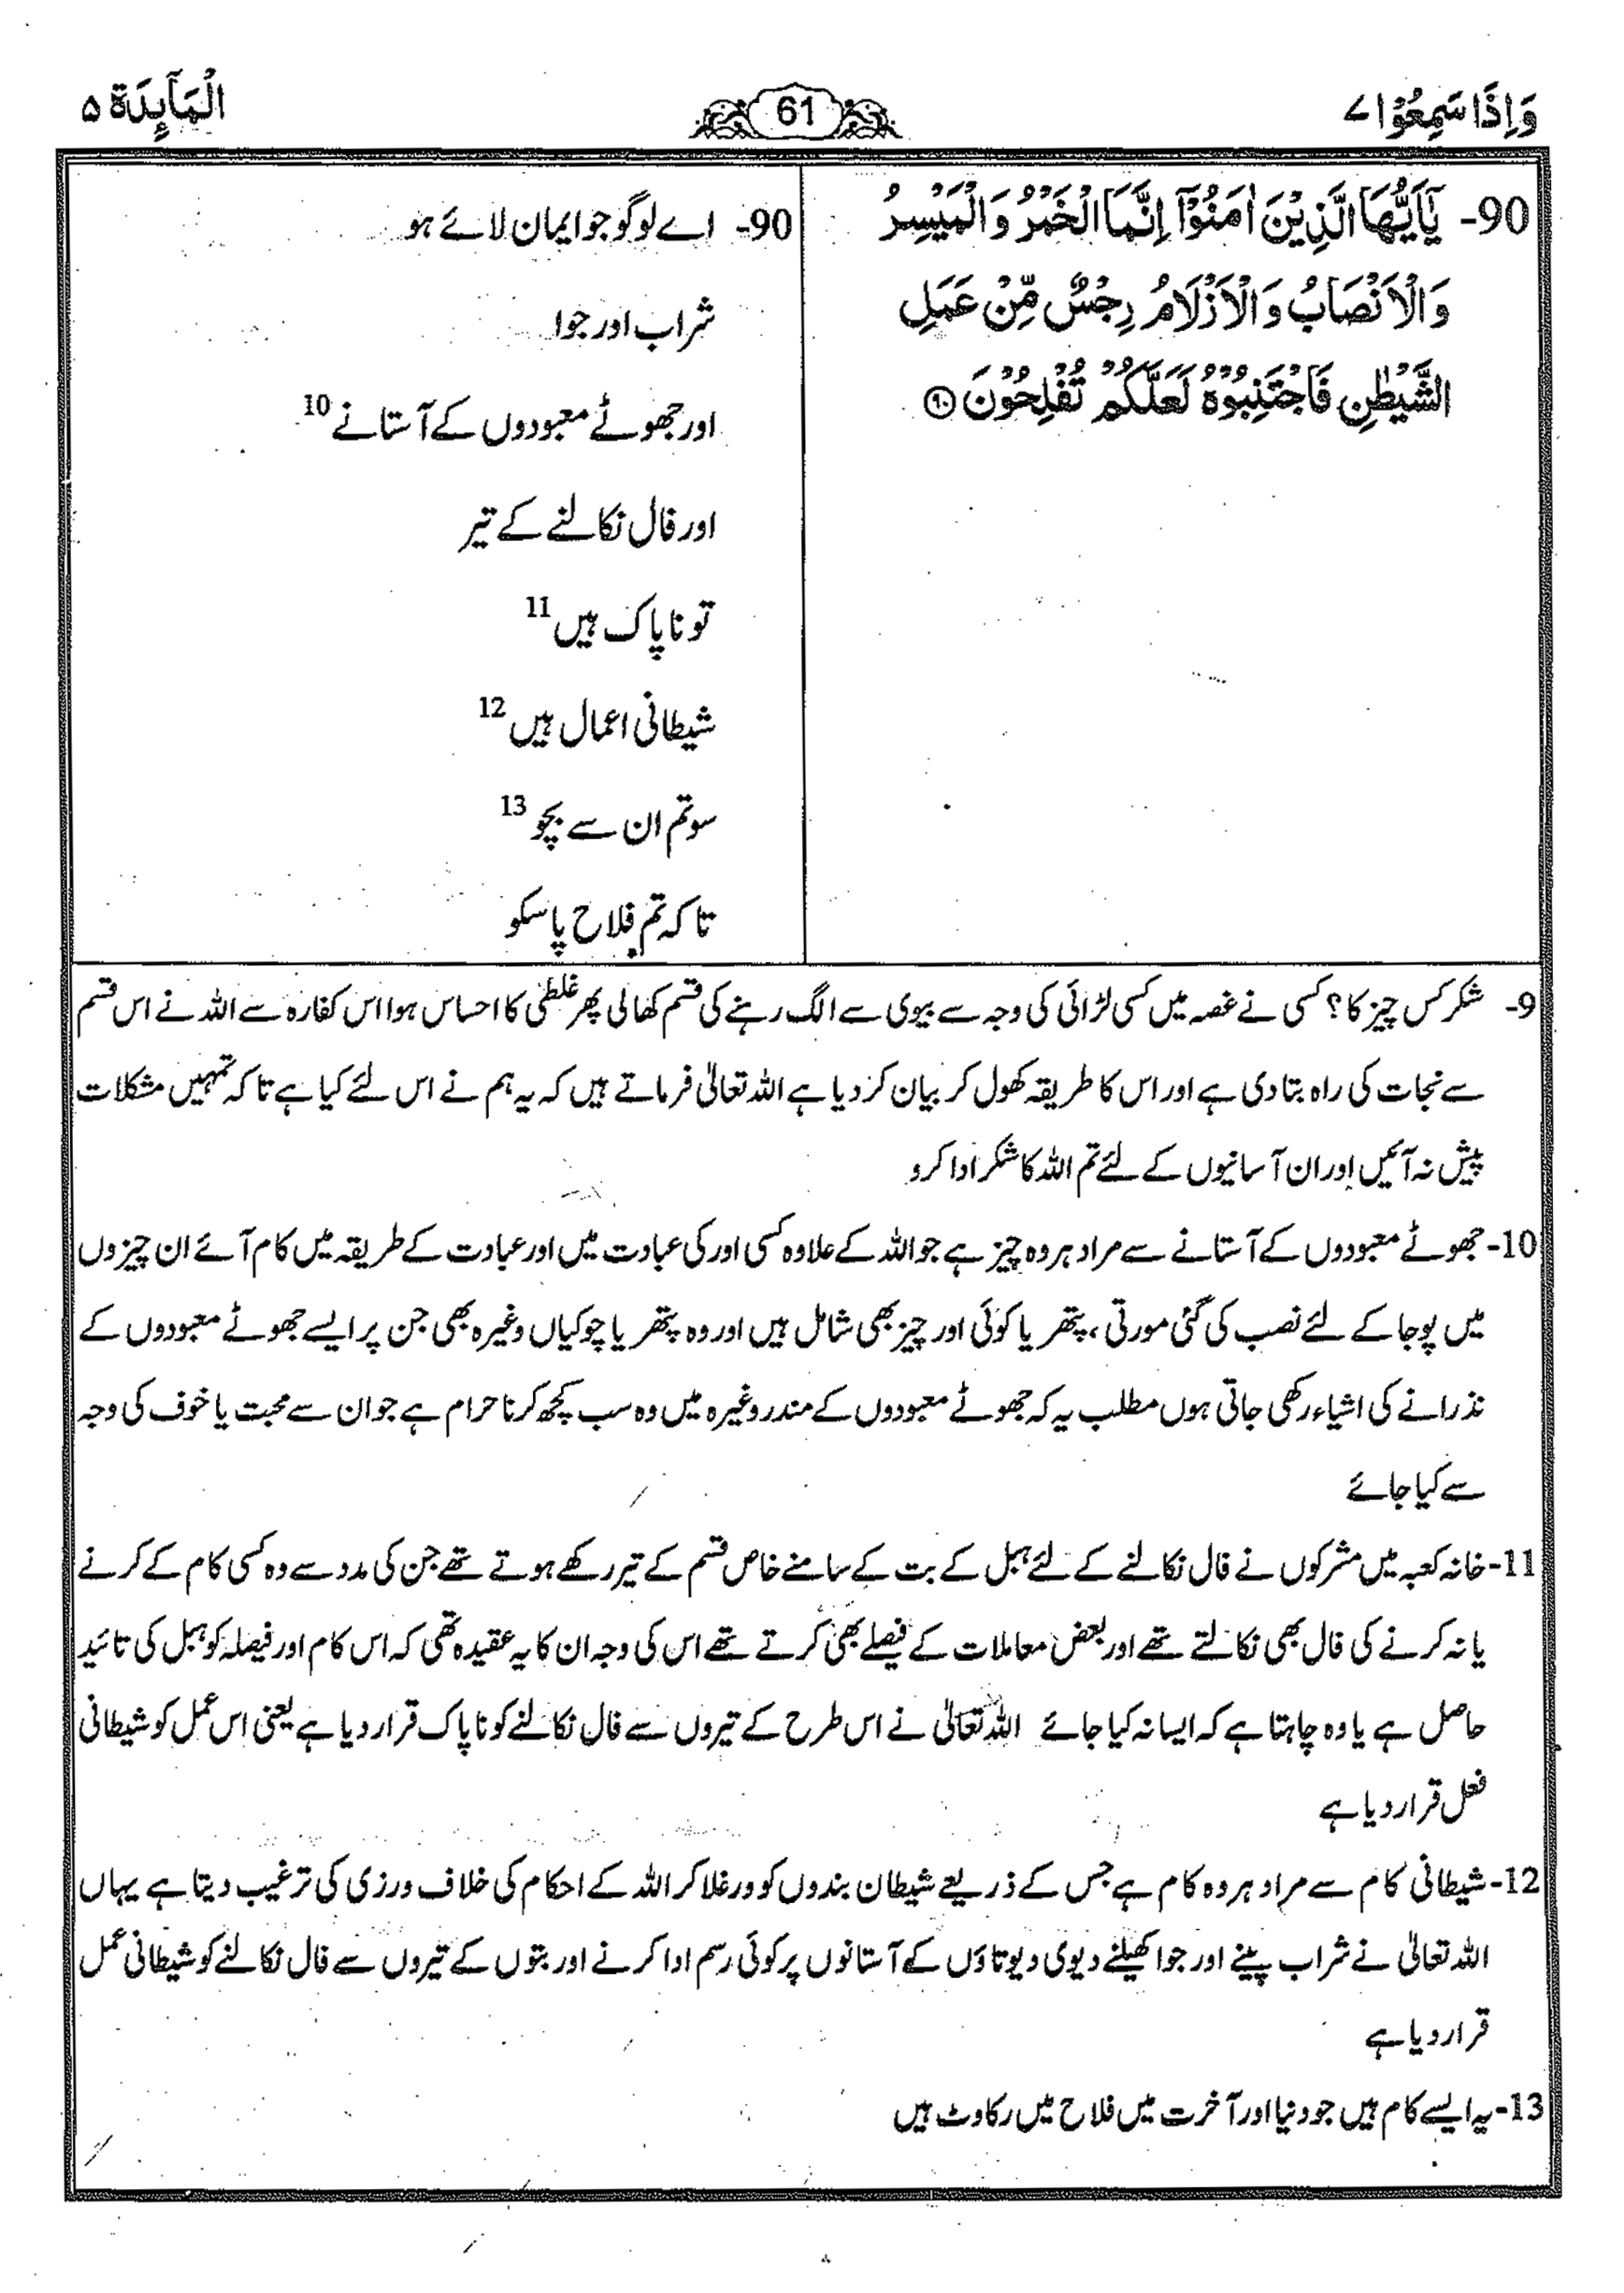 وَاِذَا سَمِعُوْا ۷
61
الْمَآىِٕدَة ۵
90- يٰٓاَيُّهَا الَّذِيْنَ اٰمَنُوْٓا اِنَّمَا الْخَمْرُ وَ الْمَيْسِرُ
وَ الْاَنْصَابُ وَ الْاَزْلَامُ رِجْسٌ مِّنْ عَمَلِ
الشَّيْطٰنِ فَاجْتَنِبُوْهُ لَعَلَّكُمْ تُفْلِحُوْنَ ۹۰
90- اے لوگو جو ایمان لائے ہو
شراب اور جوا
اور جھوٹے معبودوں کے آستانے 10
اور فال نکالنے کے تیر
تو ناپاک ہیں 11
شیطانی اعمال ہیں 12
سو تم ان سے بچو 13
تاکہ تم فلاح پا سکو
9- شکر کس چیز کا؟ کسی نے غصہ میں کسی لڑائی کی وجہ سے بیوی سے الگ رہنے کی قسم کھالی پھر غلطی کا احساس ہوا اس کفارہ سے اللہ نے اس قسم
سے نجات کی راہ بتا دی ہے اور اس کا طریقہ کھول کر بیان کر دیا ہے اللہ تعالیٰ فرماتے ہیں کہ یہ ہم نے اس لئے کیا ہے تاکہ تمہیں مشکلات
پیش نہ آئیں اور ان آسانیوں کے لئے تم اللہ کا شکر ادا کرو
10- جھوٹے معبودوں کے آستانے سے مراد ہر وہ چیز ہے جو اللہ کے علاوہ کسی اور کی عبادت میں اور عبادت کے طریقہ میں کام آئے ان چیزوں
میں پوجا کے لئے نصب کی گئی مورتی ، پتھر یا کوئی اور چیز بھی شامل ہیں اور وہ پتھر یا چوکیاں وغیرہ بھی جن پر ایسے جھوٹے معبودوں کے
نذرانے کی اشیاء رکھی جاتی ہوں مطلب یہ کہ جھوٹے معبودوں کے مندر وغیرہ میں وہ سب کچھ کرنا حرام ہے جو ان سے محبت یا خوف کی وجہ
سے کیا جائے
11- خانہ کعبہ میں مشرکوں نے فال نکالنے کے لئے ہبل کے بت کے سامنے خاص قسم کے تیر رکھے ہوتے تھے جن کی مدد سے وہ کسی کام کے کرنے
یا نہ کرنے کی فال بھی نکالتے تھے اور بعض معاملات کے فیصلے بھی کرتے تھے اس کی وجہ ان کا یہ عقیدہ تھی کہ اس کام اور فیصلہ کو ہبل کی تائید
حاصل ہے یا وہ چاہتا ہے کہ ایسا نہ کیا جائے اللہ تعالیٰ نے اس طرح کے تیروں سے فال نکالنے کو ناپاک قرار دیا ہے یعنی اس عمل کو شیطانی
فعل قرار دیا ہے
12- شیطانی کام سے مراد ہر وہ کام ہے جس کے ذریعے شیطان بندوں کو ورغلا کر اللہ کے احکام کی خلاف ورزی کی ترغیب دیتا ہے یہاں
اللہ تعالیٰ نے شراب پینے اور جوا کھیلنے دیوی دیوتاؤں کے آستانوں پر کوئی رسم ادا کرنے اور بتوں کے تیروں سے فال نکالنے کو شیطانی عمل
قرار دیا ہے
13- یہ ایسے کام ہیں جو دنیا اور آخرت میں فلاح میں رکاوٹ ہیں